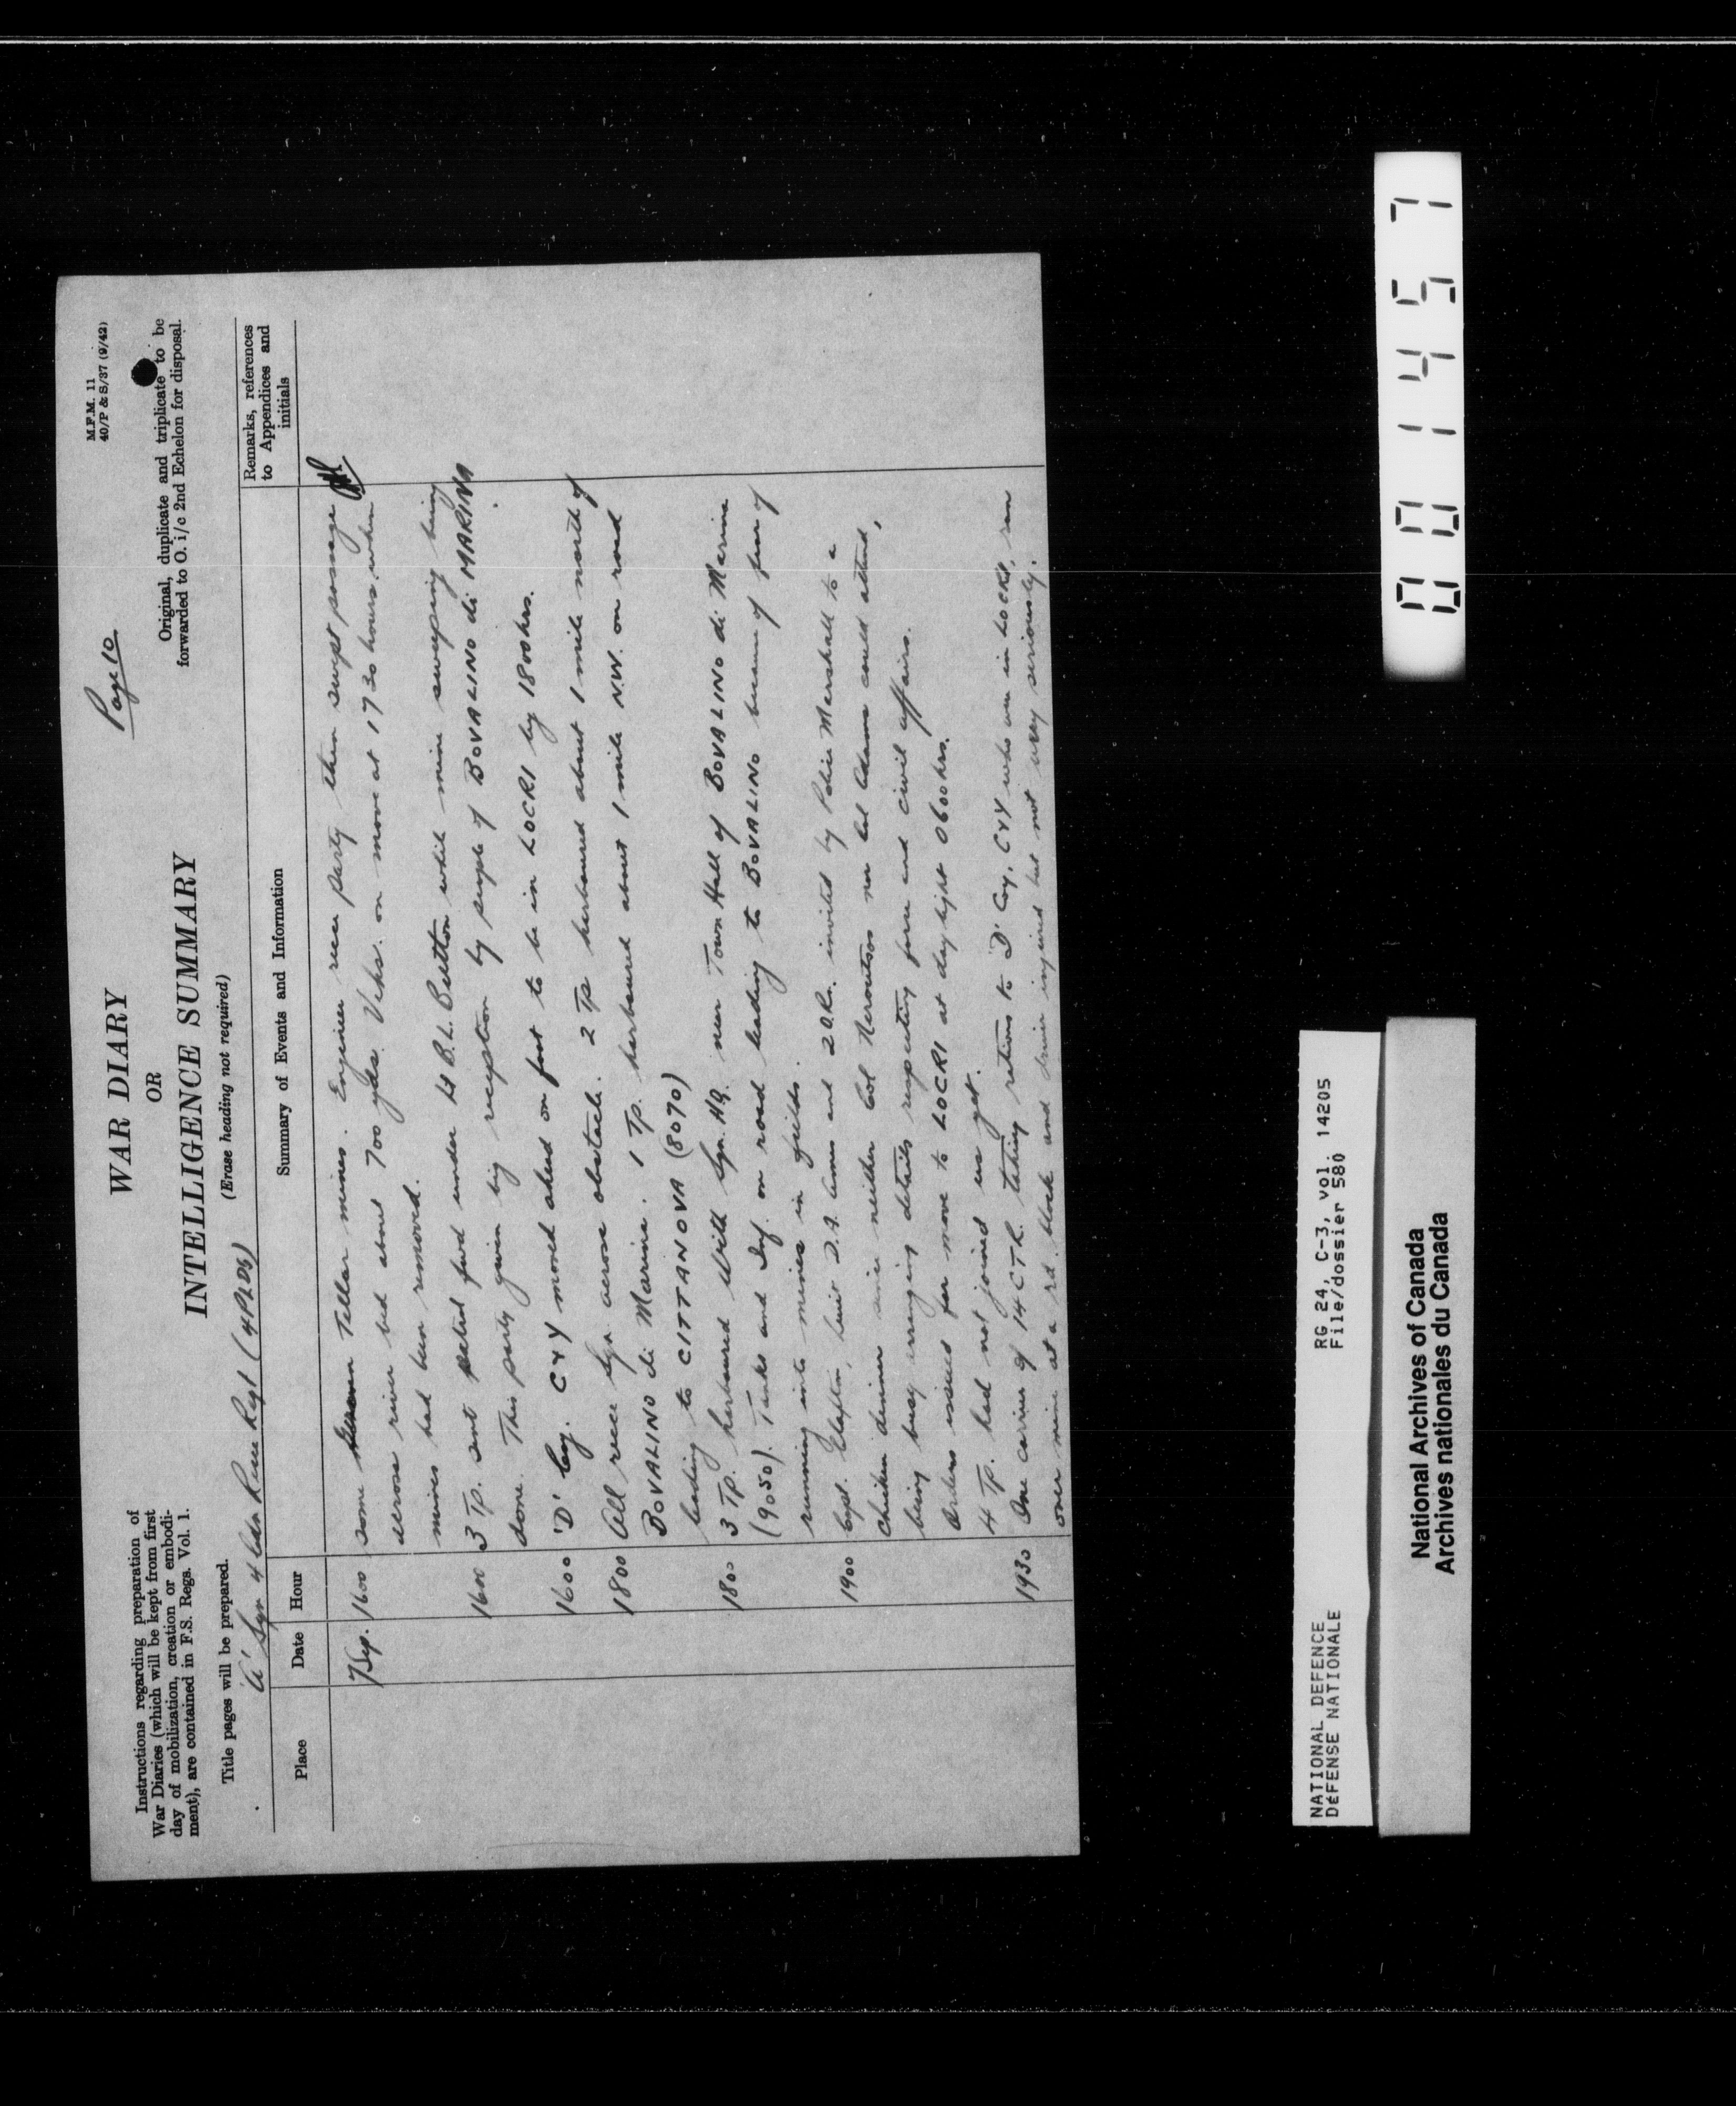 M.F.M. 11
40/P & S/37 (9/42)
Page 10
Instructions regarding preparation of
War Diaries (which will be kept from first
day of mobilization, creation or embodi-
ment), are contained in F.S. Regs. Vol. 1.
Title pages will be prepared.
WAR DIARY
OR
INTELLIGENCE SUMMARY
(Erase heading not required)
Original, duplicate and triplicate to be
forwarded to O. i/c 2nd Echelon for disposal.
'A' Sqn 4 Cdn Recce Regt (4PLDG)
Place Date Hour Summary of Events and Information Remarks, references
to Appendices and
initials
7 Sep. 1600 some Teller mines. Engineer recce party then swept passage
across river bed about 700 yds. Vehs. on move at 1730 hours when
mines had been removed.
1600 3 Tp. sent patrol fwd under Lt B.L. Button while mine sweeping being
done. This party given big reception by people of BOVALINO di MARINA.
1600 'D' Coy. CYY moved ahead on foot to be in LOCRI by 1800hrs.
1800 All recce Sqn across obstacle. 2 Tp harboured about 1 mile north of
BOVALINO di Marina. 1 Tp. harboured about 1 mile N.W. on road
leading to CITTANOVA (8070)
1800 3 Tp. harboured with Sqn. HQ. near Town Hall of BOVALINO di Marina
(9050). Tanks and Inf. on road leading to BOVALINO because of fear of
running into mines in fields.
1900 Capt. Lieut D.A. and 2 O.Rs. invited by Police Marshall to a
chicken dinner since neither Col Neroutsos nor Col Adams could attend,
being busy arranging details respecting force and civil affairs.
Orders issued for move to LOCRI at day light 0600hrs.
4 Tp. had not joined us yet.
1930 One carrier of 14 CTR. taking rations to 'D' Coy, CYY who are in Locri, ran
over mine at a rd. block and driver injured but not very seriously.
0001457
NATIONAL DEFENCE
DÉFENSE NATIONALE
RG 24, C-3, vol. 14205
File/dossier 580
National Archives of Canada
Archives nationales du Canada